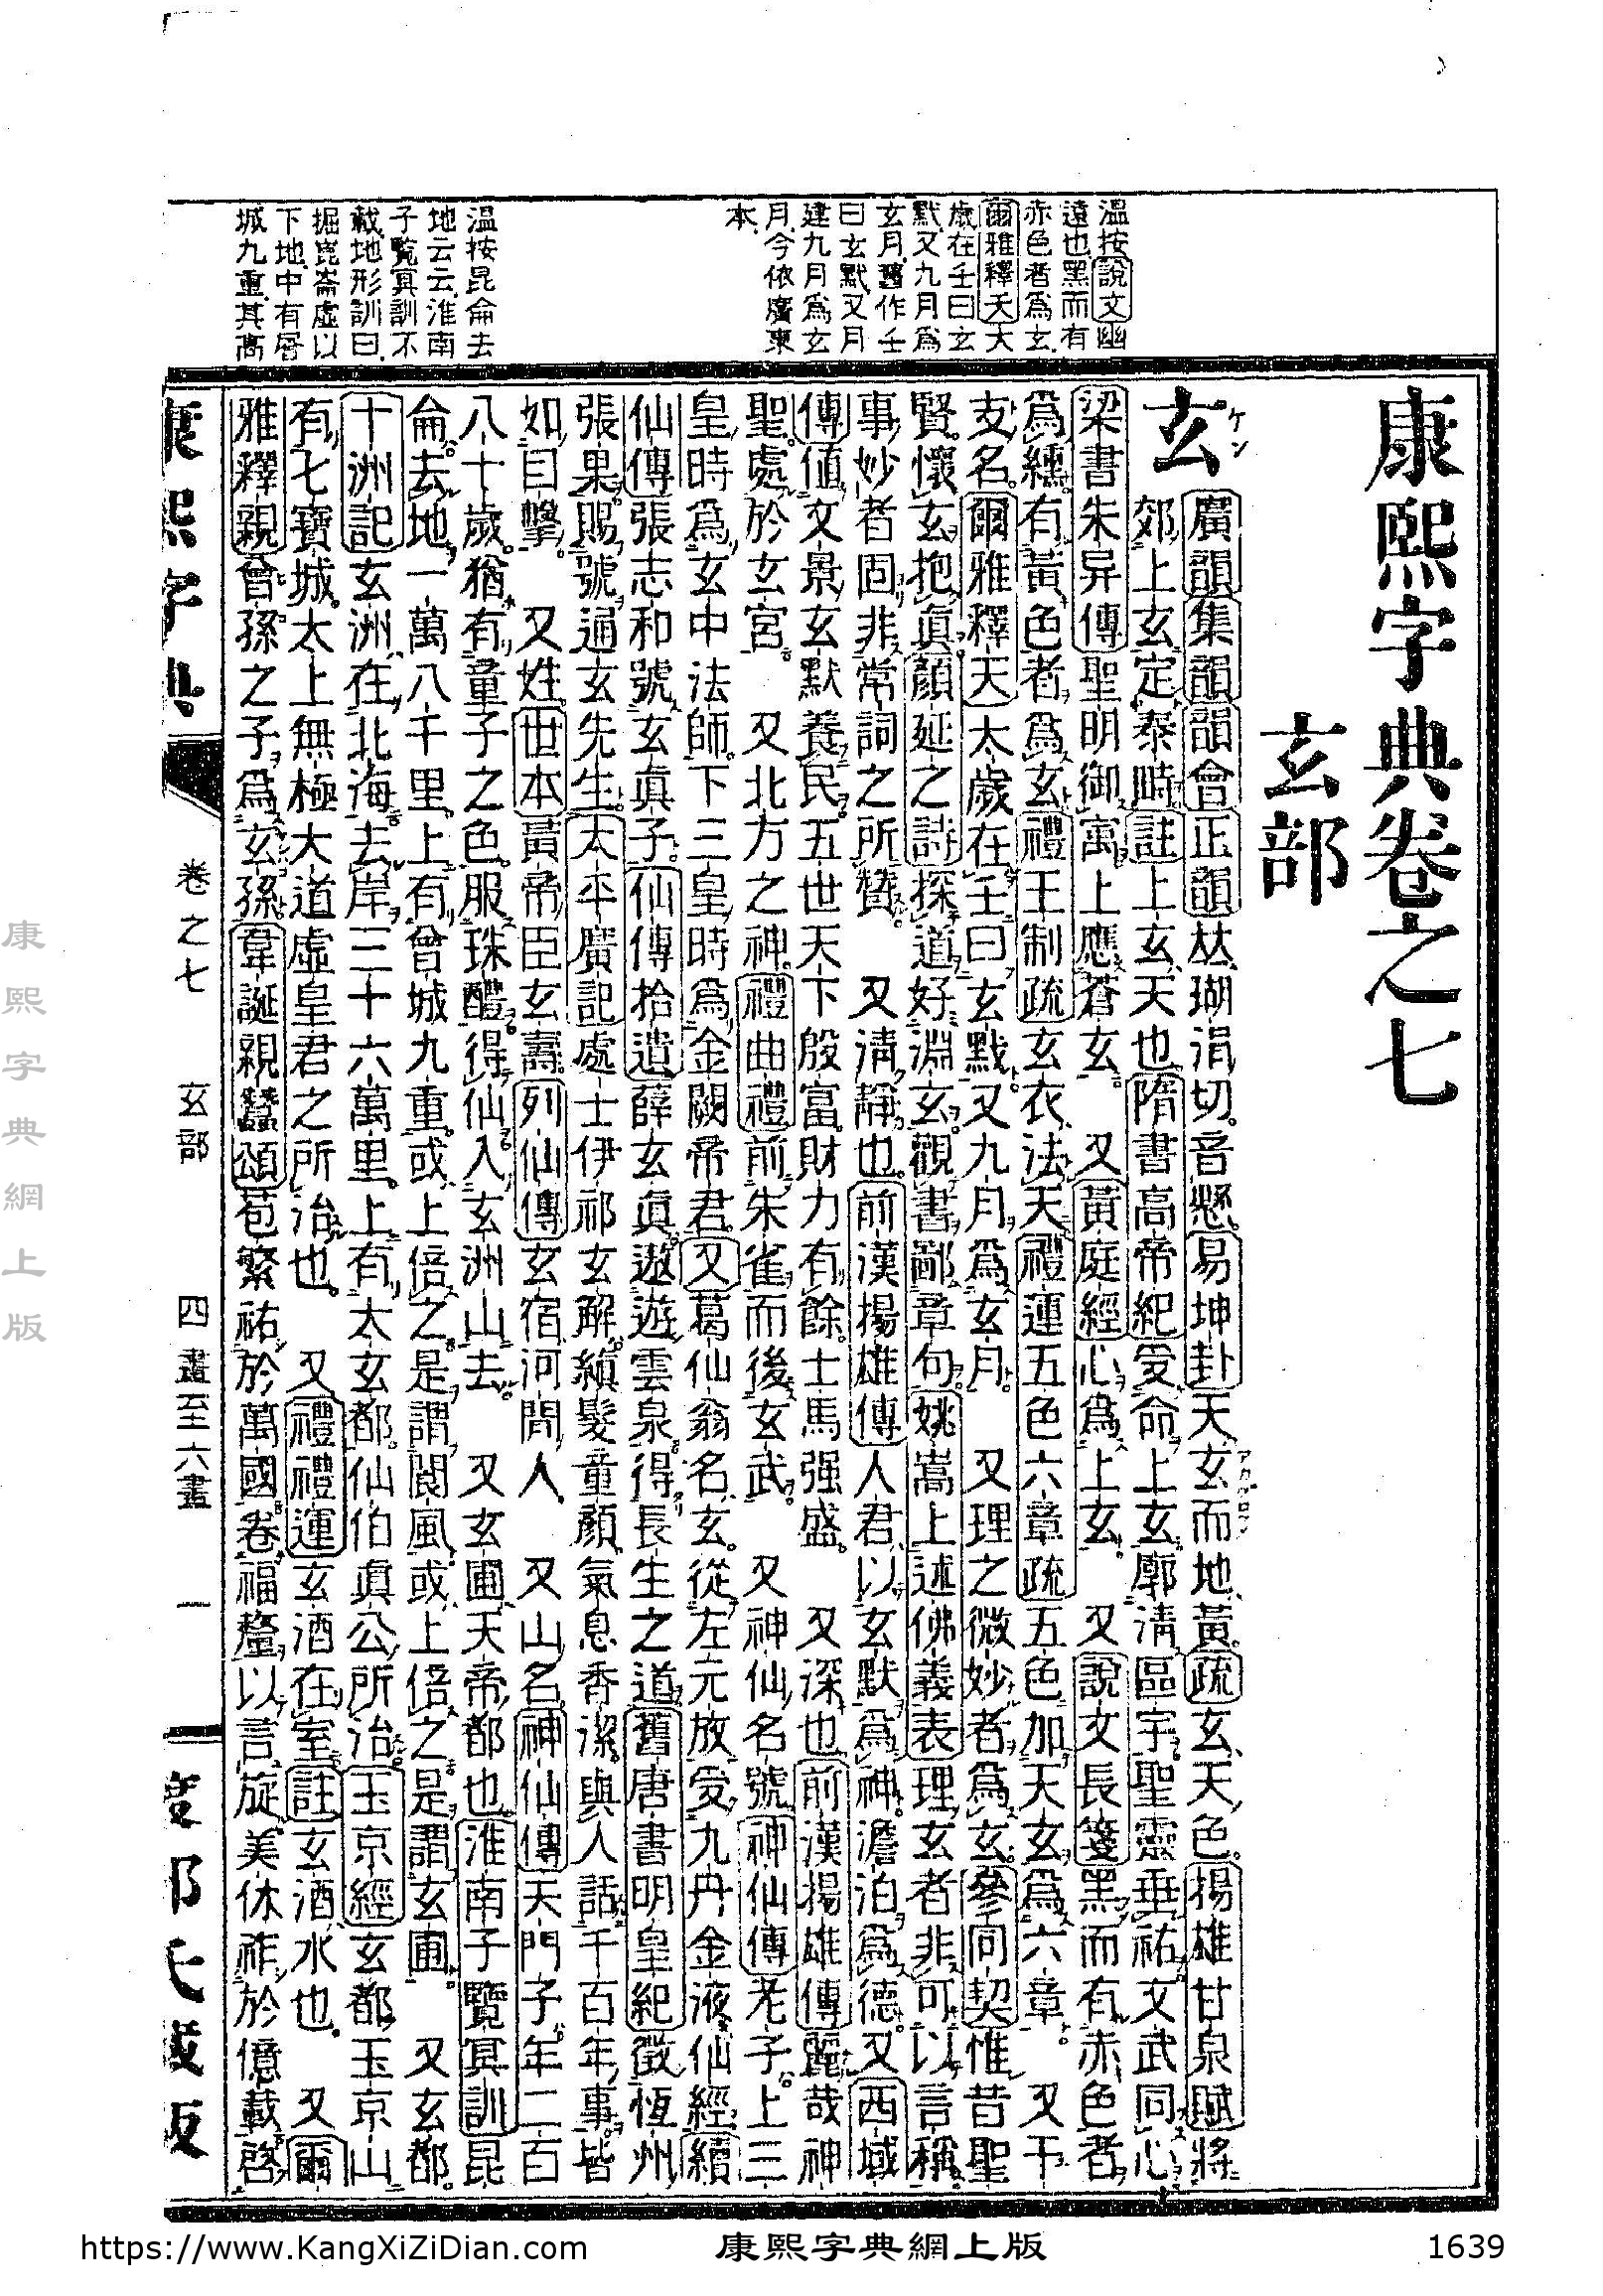 溫按說文幽
遠也黑而有
赤色者爲玄
爾雅釋天大
歲在壬曰玄
默又九月爲
玄月舊作壬
曰玄默又月
建九月爲玄
月今依廣東
本
溫按昆侖去
地云云淮南
子覽冥訓不
載地形訓曰
掘崑崙虛以
下地中有層
城九重其高
康熙字典卷之七
玄部
玄 廣韻集韻韻會正韻𠀤瑚涓切音懸易坤卦天玄而地黃疏玄天色揚雄甘泉賦將
郊上玄定泰畤註上玄天也隋書高帝紀受命上玄廓淸區宇聖靈垂祐文武同心
梁書朱异傳聖明御寓上應蒼玄 又黃庭經心爲上玄 又說文長箋黑而有赤色者
爲纁有黃色者爲玄禮王制疏玄衣法天禮運五色六章疏五色加天玄爲六章 又干
支名爾雅釋天太歲在壬曰玄黓又九月爲玄月 又理之微妙者爲玄參同契惟昔聖
賢懷玄抱眞顏延之詩探道好淵玄觀書鄙章句姚嵩上述佛義表理玄者非可以言稱
事妙者固非常詞之所贊 又淸靜也前漢揚雄傳人君以玄默爲神澹泊爲德又西域
傳値文景玄默養民五世天下殷富財力有餘士馬强盛 又深也前漢揚雄傳麗哉神
聖處於玄宮 又北方之神禮曲禮前朱雀而後玄武 又神仙名號神仙傳老子上三
皇時爲玄中法師下三皇時爲金闕帝君又葛仙翁名玄從左元放受九丹金液仙經續
仙傳張志和號玄眞子仙傳拾遺薛玄眞遨遊雲泉得長生之道舊唐書明皇紀徵恆州
張果賜號通玄先生太平廣記處士伊祁玄解縝髮童顏氣息香潔與人話千百年事皆
如目擊 又姓世本黃帝臣玄壽列仙傳玄宿河閒人 又山名神仙傳天門子年二百
八十歲猶有童子之色服珠醴得仙入玄洲山去 又玄圃天帝都也淮南子覽冥訓昆
侖去地一萬八千里上有曾城九重或上倍之是謂閬風或上倍之是謂玄圃 又玄都
十洲記玄洲在北海去岸三十六萬里上有太玄都仙伯眞公所治玉京經玄都玉京山
有七寶城太上無極大道虛皇君之所治也 又禮禮運玄酒在室註玄酒水也 又爾
雅釋親曾孫之子爲玄孫韋誕親蠶頌苞繁祐於萬國卷福釐以言旋美休祚於億載啓
卷之七 玄部 四畫至六畫 一
康熙字典網上版
https://www.KangXiZiDian.com
康熙字典網上版
1639